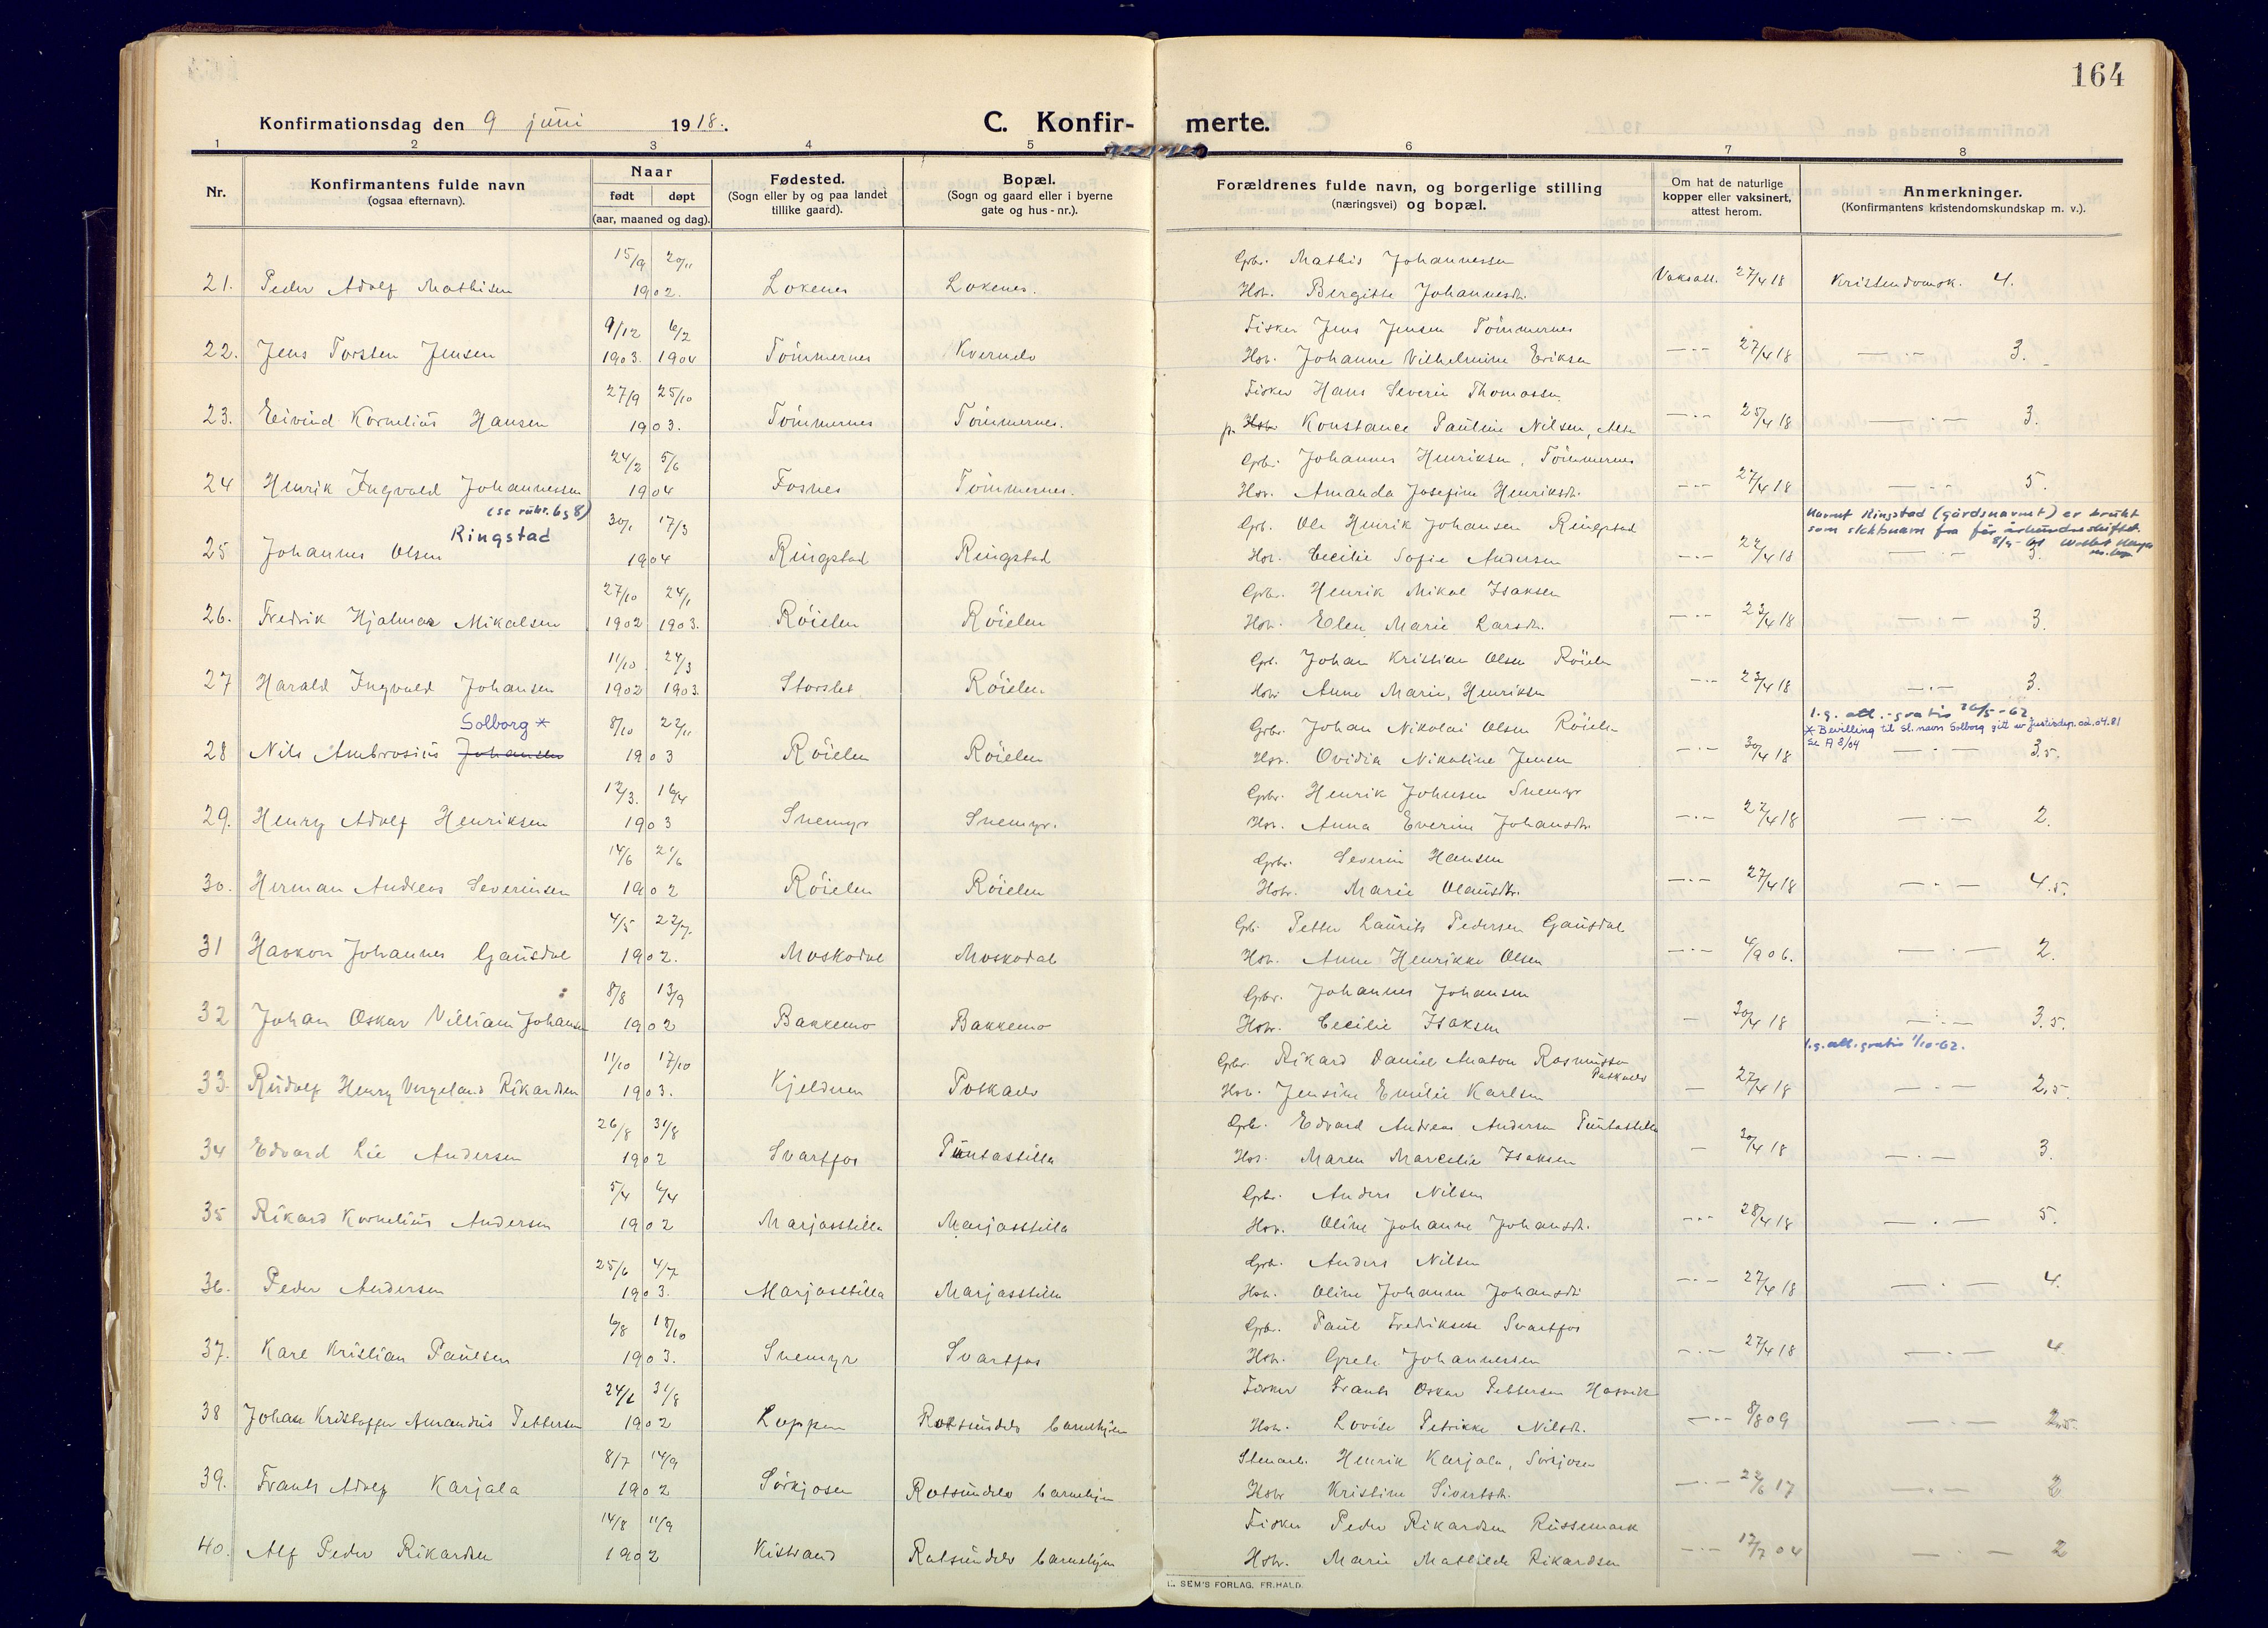 164
Konfirmationsdag den 9 juni 1918.
C. Konfir- merte.
1 2 3 4 5 6 7 8
Nr.
Konfirmantens fulde navn
(ogsaa efternavn).
Naar
født døpt
(aar, maaned og dag).
Fødested.
(Sogn eller by og paa landet
tillike gaard).
Bopæl.
(Sogn og gaard eller i byerne
gate og hus-nr.).
Forældrenes fulde navn, og borgerlige stilling
(næringsvei) og bopæl.
Om hat de naturlige
kopper eller vaksinert,
attest herom.
Anmerkninger.
(Konfirmantens kristendomskundskap m. v.).
15/9 20/11 Grbr. Mathis Johannessen
21. Peder Adolf Mathisen 1902. Lokenes Lokenes. Hstr. Bergitte Johannesdtr. Vaksatt. 27/4 18 Kristendomsk. 4.
9/12 6/2 Fisker Jens Jensen Tömmernes
22. Jens Torsten Jensen 1903. 1904 Tömmernes Kvernelv Hstr. Johanne Vilhelmine Eriksen —·— 27/4 18 —·— 3.
27/9 25/10 Fisker Hans Severin Thomassen
23. Eivind Kornelius Hansen 1903. Tömmernes Tömmernes. p. Hstr Konstance Pauline Nilsen, Alta —·— 25/4 18 —·— 3.
24/2 5/6 Grbr. Johannes Henriksen, Tömmernes
24 Henrik Ingvald Johannessen 1904 Fosnes Tömmernes. Hstr. Amanda Josefine Henriksdtr. —·— 27/4 18 —·— 5.
(se rubr. 6 g 8) 30/1 17/3 Grb. Ole Henrik Johansen Ringstad Navnet Ringstad (gårdsnavnet) er brukt
Ringstad som slektsnavn fra før århundreskiftet.
25 Johannes Olsen 1904 Ringstad Ringstad Hstr. Cecilie Sofie Andersen —·— 22/4 18 —·— 3.
27/10 24/1 Grbr. Henrik Mikal Isaksen
26. Fredrik Hjalmar Mikalsen 1902 1903. Röielen Röielen Hstr. Elen Marie Larsdtr. —·— 23/4 18 —·— 3.
11/10 24/3 Grb. Johan Kristian Olsen Röielen
27 Harald Ingvald Johansen 1902 1903. Storslet Röielen. Hstr Anne Marie, Henriksen —·— 23/4 18 —·— 3.
l.g. att. - gratis 26/5-62
Solborg * 8/10 22/11 Grbr. Johan Nikolai Olsen Röielen * Bevilling til sl.navn Solborg gitt av Justisdep. 02.04.81
Se A 8/04
28 Nils Ambrosius Johansen 1903 Röielen Röielen Hstr. Ovidia Nikoline Jensen —·— 30/4 18 —·— 3.5.
12/3. 16/4 Grbr. Henrik Johnsen Snemyr
29. Henry Adolf Henriksen 1903 Snemyr Snemyr. Hstr. Anna Everine Johansdtr. —·— 22/4 18 —·— 2.
14/6 21/6 Grbr. Severin Hansen
30. Herman Andreas Severinsen 1902 Röielen Röielen Hstr. Marie Olausdtr. —·— 27/4 18 —·— 4.5.
4/5 22/7. Grb. Petter Laurits Pedersen Gausdal
31 Haakon Johannes Gausdal 1902. Moskodal Moskodal Hstr. Anne Henrikke Olsen —·— 4/9 06. —·— 2.
8/8 13/9 Grbr. Johannes Johansen
32 Johan Oskar Villiam Johansen 1902 Bakkemo Bakkemo Hstr. Cecilie Isaksen — 30/4 18 —·— 3.5.
11/10 17/10 Grbr. Rikard Daniel Anaton Rasmussen l.g. att. gratis 1/10-62.
33. Rudolf Henry Vergeland Rikardsen 1903. Kjelderen Potkaelv Hstr. Jensine Emilie Karlsen — 27/4 18 — 2,5.
26/8 31/8 Grb. Edvard Andreas Andersen Puntastilla
34 Edvard Lie Andersen 1902 Svartfos Puntastilla Hstr. Maren Marcelie Isaksen — 30/4 18 —·— 3.
5/4 6/4 Grbr. Anders Nilsen
35 Rikard Kornelius Andersen 1902 Marjasstilla Marjasstilla Hstr. Oline Johanne Johansdtr. —·— 28/4 18 —·— 5.
25/6 4/7 Grb. Anders Nilsen
36. Peder Andersen 1903. Marjasstilla Marjasstilla Hstr. Oline Johanne Johansdtr —·— 27/4 18 —·— 4.
6/8 18/10 Grbr. Paul Fredriksen Svartfos
37. Karl Kristian Paulsen 1903. Snemyr Svartfos Hstr. Grete Johannessen —·— 27/4 18 —·— 4.
31/8 Fisker Frants Oskar Pettersen Hasvik
38 Johan Kristoffer Amandus Pettersen 1902 Loppen Rotsundelv barnehjem Hstr. Lovise Petrikke Nilsdtr. —·— 8/8 09 —·— 2.5.
8/7 14/9 Stenarb. Henrik Karjala, Sörkjosen
39. Frants Adolf Karjala 1902 Sörkjosen Rotsundelv barnehjem Hstr Kristine Sivertsdtr. —·— 22/6 17 —·— 2
14/8 11/9 Fisker Peder Rikardsen Russemark
40. Alf Peder Rikardsen 1902 Kistrand Rotsundelv barnehjem Hstr. Marie Mathilde Rikardsen —·— 12/7 04 —·— 2
SEM'S FORLAG, FR.HALD.